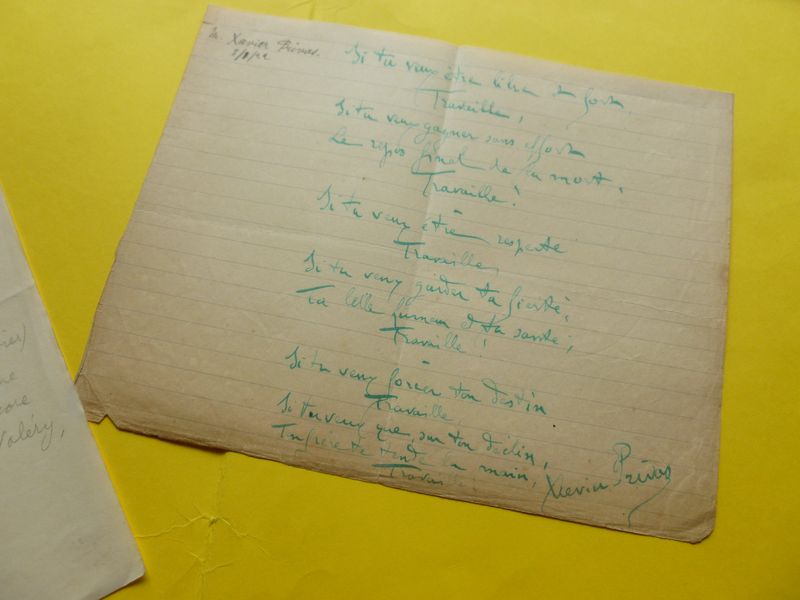 M. Xavier Privas.
Si tu veux être libre et fort,
Travaille,
Si tu veux gagner sans effort
Le repos final de la mort,
Travaille!
Si tu veux être respecté
Travaille,
Si tu veux garder ta fierté,
Ta belle humeur et ta santé,
Travaille!
Si tu veux forcer ton destin
Travaille,
Si tu veux que, sur ton déclin,
Un frère te tende la main,
Travaille!
Xavier Privas
Valéry,